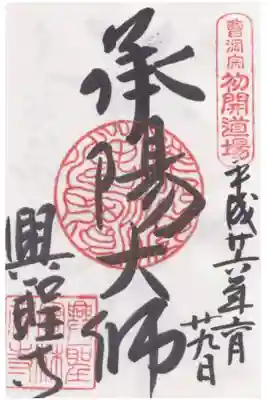 曹洞宗
初開道場
平成廿六年六月
廿九日
承陽大師
興聖寺